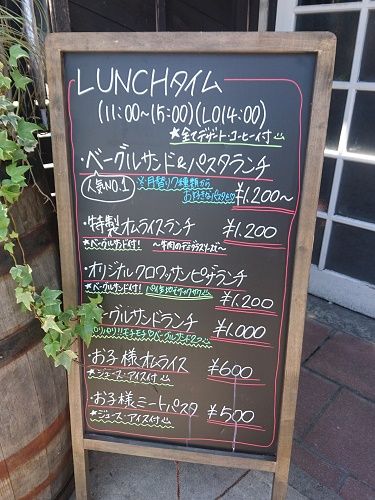 LUNCHタイム
(11:00~15:00)(LO14:00)
★全てデザート・コーヒー付
・ベーグルサンド&パスタランチ
人気NO.1
※月替り7種類から
お好きなパスタ
¥1,200~
・特製オムライスランチ ¥1,200
★ベーグルサンド付! ~牛肉のデミグラスソース~
・オリジナルクロワッサンピザランチ
★ベーグルサンド付!
¥1,200
ベーグルサンドランチ ¥1,000
パリパリ!!モチモチ♡ベーグルサンド2つ
・お子様オムライス ¥600
★ジュース・アイス付
・お子様ミートパスタ ¥500
★ジュース・アイス付